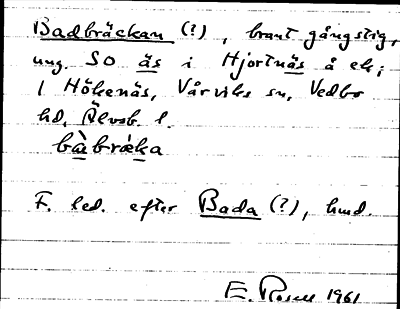 Badbräckan (?), brant gångstig,
ung. SO äs i Hjortnäs å ek;
l Hökenäs, Vårviks sn, Vedbo
hd, Älvsb. l.
bàbrǻka
F. led. efter Bada (?), hmd.
E. Rosell 1961